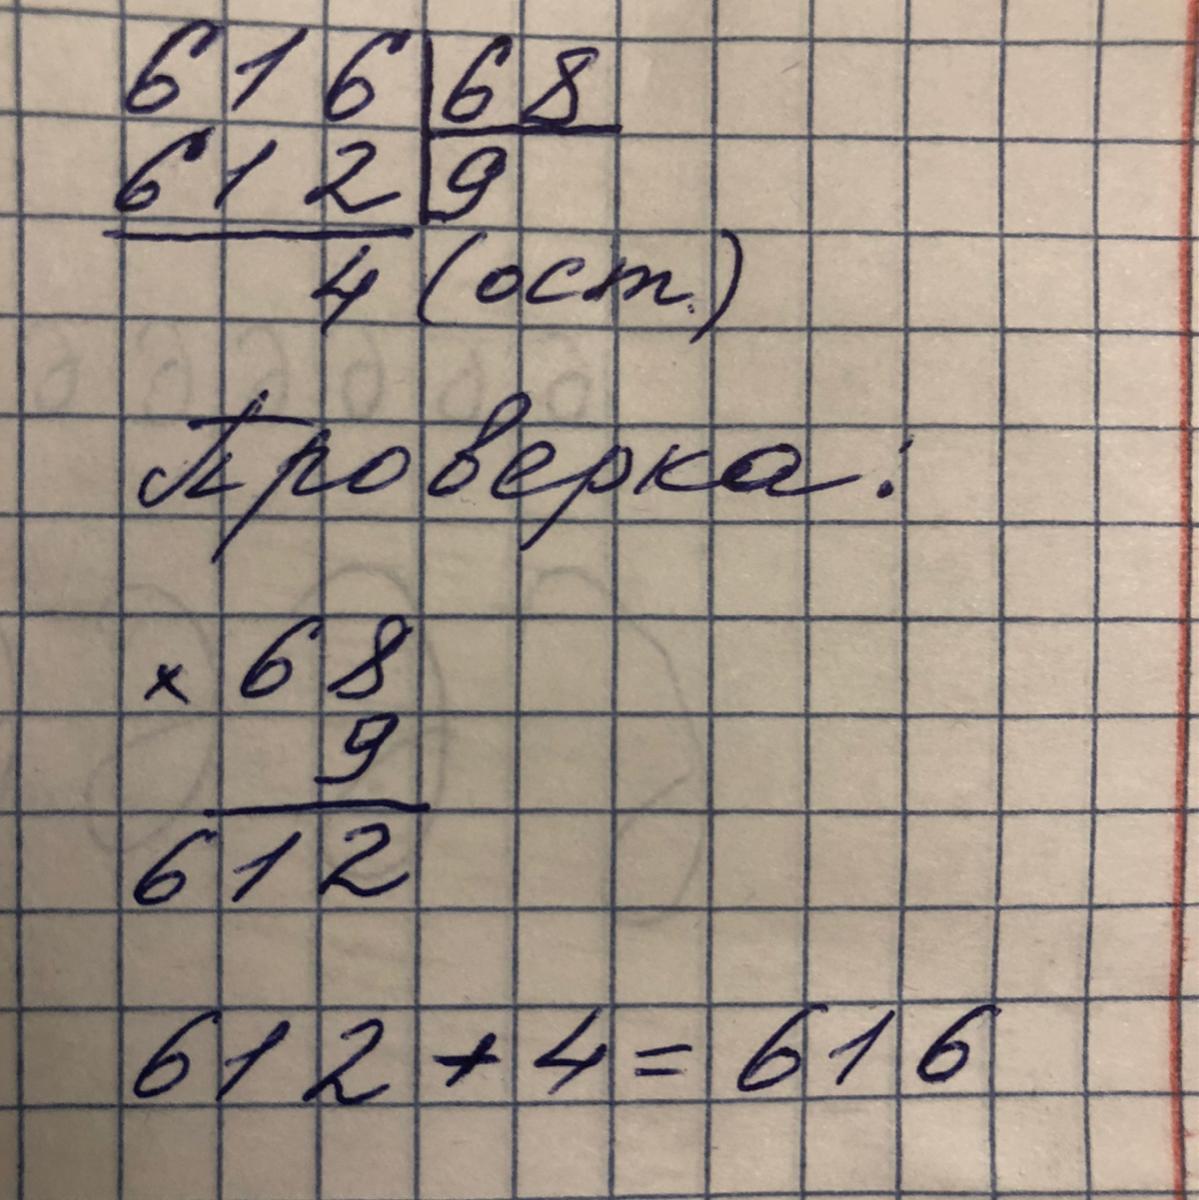 616|68
612|9
4 (ост.)
Проверка:
× 68
9
612
612 + 4 = 616